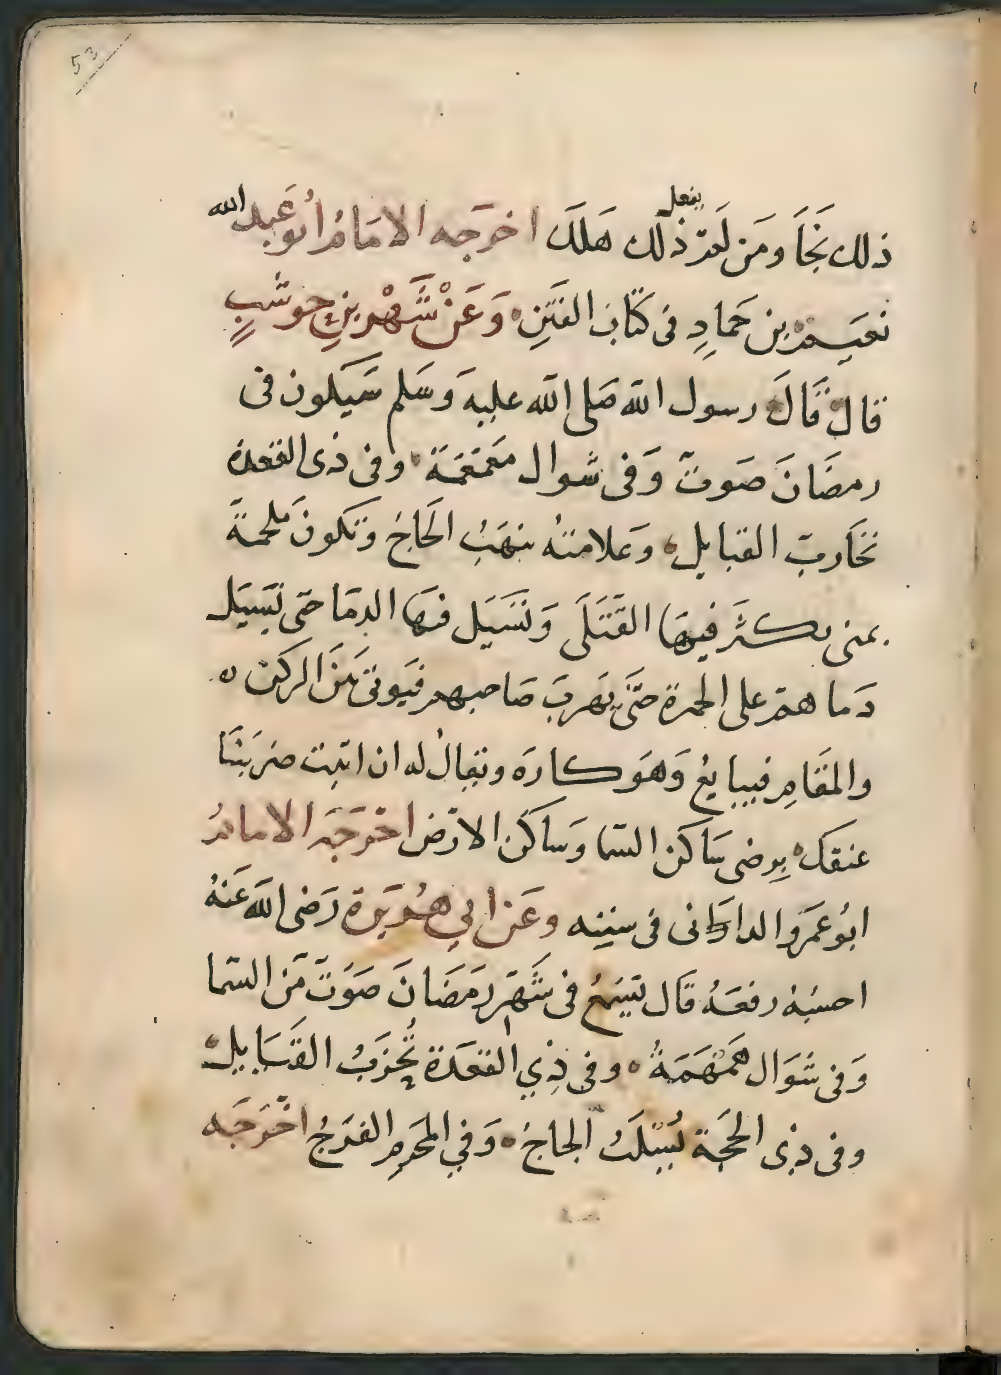 53
ذلك نجا ومن لم يفعل ذلك هلك اخرجه الامام ابو عبد الله
نعيم بن حماد في كتاب الفتن وعن شهر بن حوشب
قال قال رسول الله صلى الله عليه وسلم سيكون في
رمضان صوت وفي شوال معمعة وفي ذى القعدة
تحارب القبايل وعلامته ينهب الحاج وتكون ملحمة
بمنى يكثر فيها القتلى وتسيل فيها الدما حتى تسيل
دماهم على الجمرة حتى يهرب صاحبهم فيوتى بين الركن
والمقام فيبايع وهو كاره ويقال له ان ابيت ضربنا
عنقك يرضى ساكن السما وساكن الارض اخرجه الامام
ابو عمرو الدانى في سننه وعن ابي هريرة رضى الله عنه
احسبه رفعه قال يسمع في شهر رمضان صوت من السما
وفي شوال همهمة وفي ذي القعدة تحزب القبايل
وفي ذى الحجة يسلب الحاج وفي المحرم الفرج اخرجه